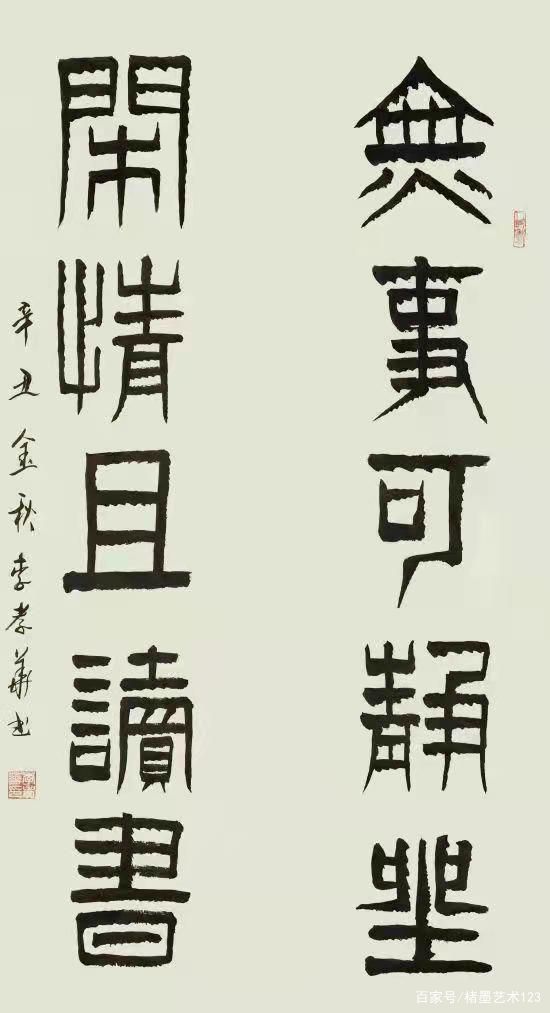 無事可静坐
閑情且讀書
辛丑金秋李孝華书
百家号/楮墨艺术123